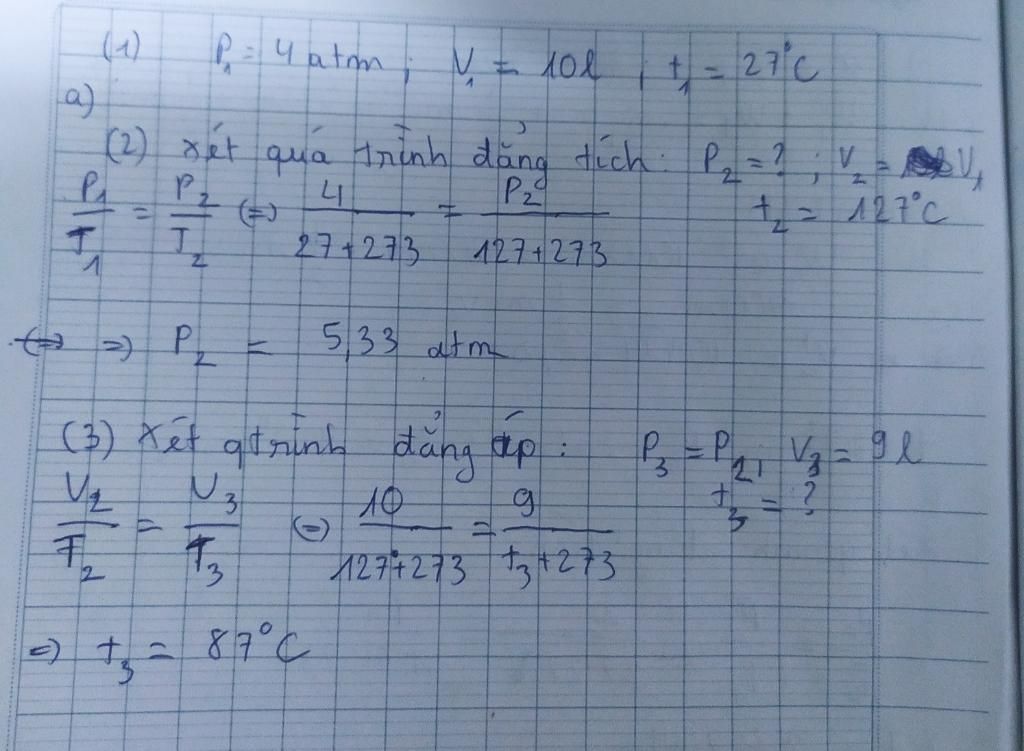 (1) P₁ = 4 atm ; V₁ = 10l ; t₁ = 27°C
a)
(2) xét quá trình đẳng tích: P₂ = ? ; V₂ = V₁
P₁/T₁ = P₂/T₂ (=) 4/(27+273) = P₂/(127+273) t₂ = 127°C
=) P₂ = 5,33 atm
(3) Xét qtrình đẳng áp : P₃ = P₂, V₃ = 9l
V₂/T₂ = V₃/T₃ (=) 10/(127+273) = 9/(t₃+273) t₃ = ?
=) t₃ = 87°C